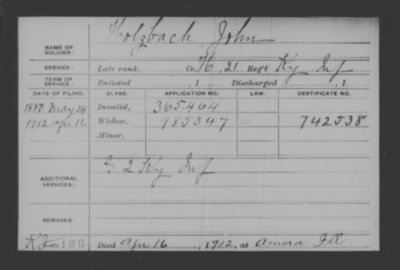 NAME OF SOLDIER: Holzbach John
SERVICE: Late rank, Co. H, 21 Reg't Ky Inf
TERM OF SERVICE: Enlisted , 1 Discharged , 1
DATE OF FILING. CLASS. APPLICATION NO. LAW. CERTIFICATE NO.
1880 May 14 Invalid, 365464
1912 Apr 16 Widow, 985347 742538
Minor,
ADDITIONAL SERVICES: G 2 Ky Inf
REMARKS:
Died Apr 16, 1912, at Aurora Ill